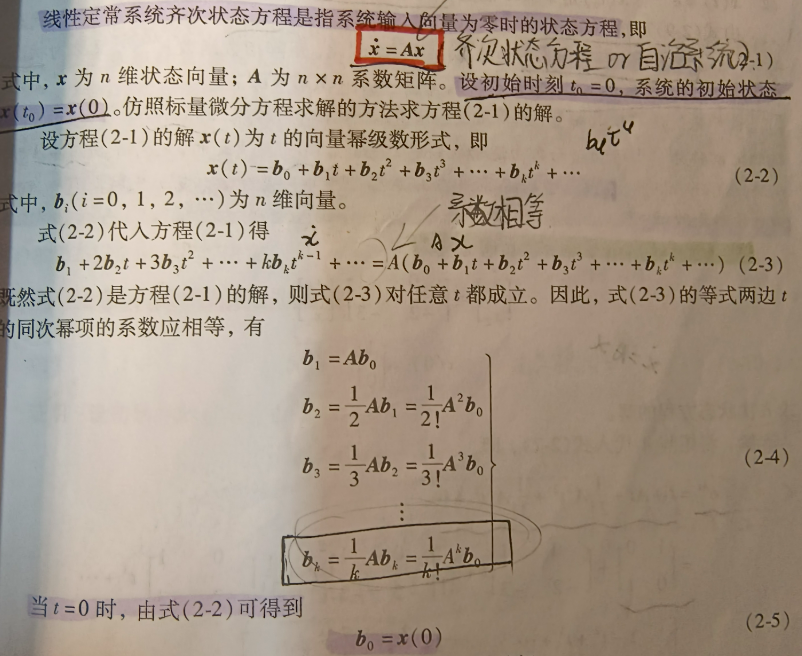 线性定常系统齐次状态方程是指系统输入向量为零时的状态方程,即
ẋ = Ax 齐次状态方程 or 自治系统 2-1)
式中, x 为 n 维状态向量; A 为 n × n 系数矩阵。设初始时刻 t₀ = 0, 系统的初始状态
x(t₀) = x(0)。仿照标量微分方程求解的方法求方程(2-1)的解。
设方程(2-1)的解 x(t) 为 t 的向量幂级数形式, 即
x(t) = b₀ + b₁t + b₂t² + b₃t³ + ⋯ + bₖtᵏ + ⋯ (2-2)
式中, bᵢ(i=0, 1, 2, ⋯)为 n 维向量。
系数相等
式(2-2)代入方程(2-1)得
ẋ Ax
b₁ + 2b₂t + 3b₃t² + ⋯ + kbₖtᵏ⁻¹ + ⋯ = A(b₀ + b₁t + b₂t² + b₃t³ + ⋯ + bₖtᵏ + ⋯) (2-3)
既然式(2-2)是方程(2-1)的解, 则式(2-3)对任意 t 都成立。因此, 式(2-3)的等式两边 t
的同次幂项的系数应相等, 有
b₁ = Ab₀
b₂ = 1/2 Ab₁ = 1/2! A²b₀
b₃ = 1/3 Ab₂ = 1/3! A³b₀
(2-4)
⋮
bₖ = 1/k Abₖ = 1/k! Aᵏb₀
当 t=0 时, 由式(2-2)可得到
b₀ = x(0) (2-5)